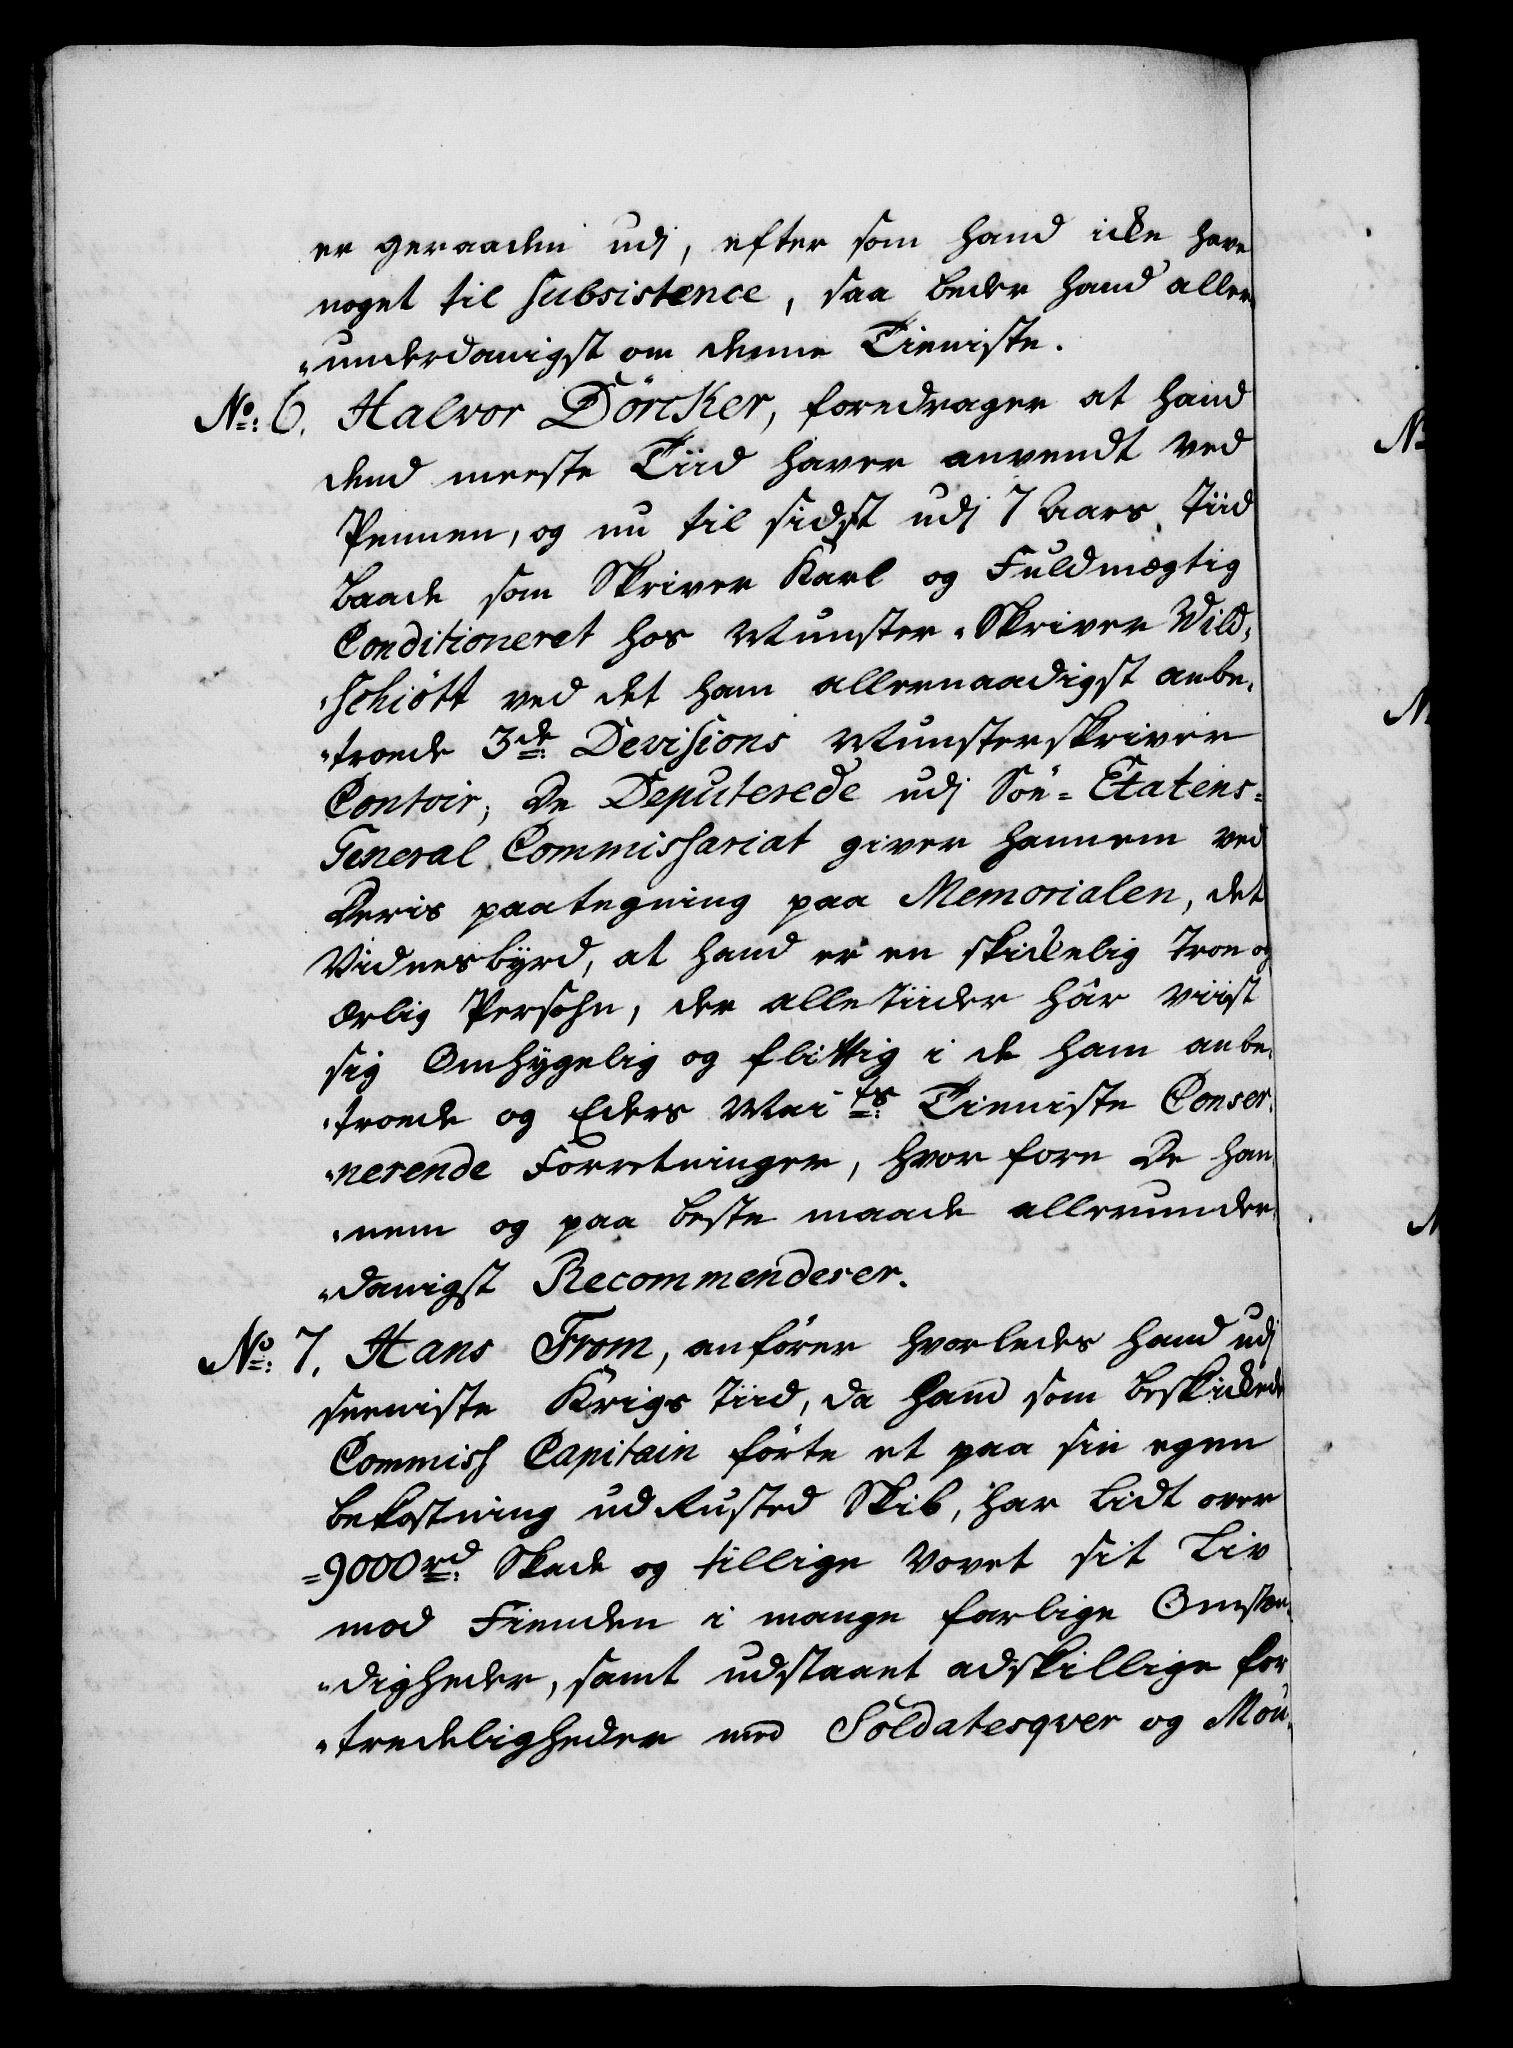 er geraaden udj, efter som hand icke have
noget til Subsistence, saa beder hand aller
"underdanigst om denne Tieniste.
No: 6. Halvor Dörcker, foredrager at hand
dend meeste Tiid haver anvendt ved
Pennen, og nu til sidst udj 7 Aars Tiid
baade som Skriver Karl og Fuldmægtig
Conditioneret hos Munster-Skriver Wild-
"Schiött ved det ham allernaadigst anbe-
"troede 3de Devisions Munsterskriver
Contoir, De Deputerede udj Söe-Etatens-
General Commissariat giver hannem ved
Deris paategning paa Memorialen, det
Vidnesbyrd, at hand er en skickelig troe og
ærlig Persohn, der alle tiider hâr viist
sig omhÿgelig og flittig i de ham anbe-
"troede og Eders Maits Tieniste Conser-
"nerende Forretninger, hvor fore De han-
"nem og paa beste maade allerunder-
"danigst Recommenderer.
No: 7. Hans From, anförer hvorledes hand udj
seeniste Krigs Tiid, da hand som beskickede
Commiss Capitain förte et paa sin egen
bekostning ud Rusted Skib, har lidt over
=9000rd Skade og tillige vovet sit Liv
mod Fienden i mange farlige Omstæn-
"digheder, samt udstaaet adskillige for
"tredeligheder med Soldatesqver og Mou-